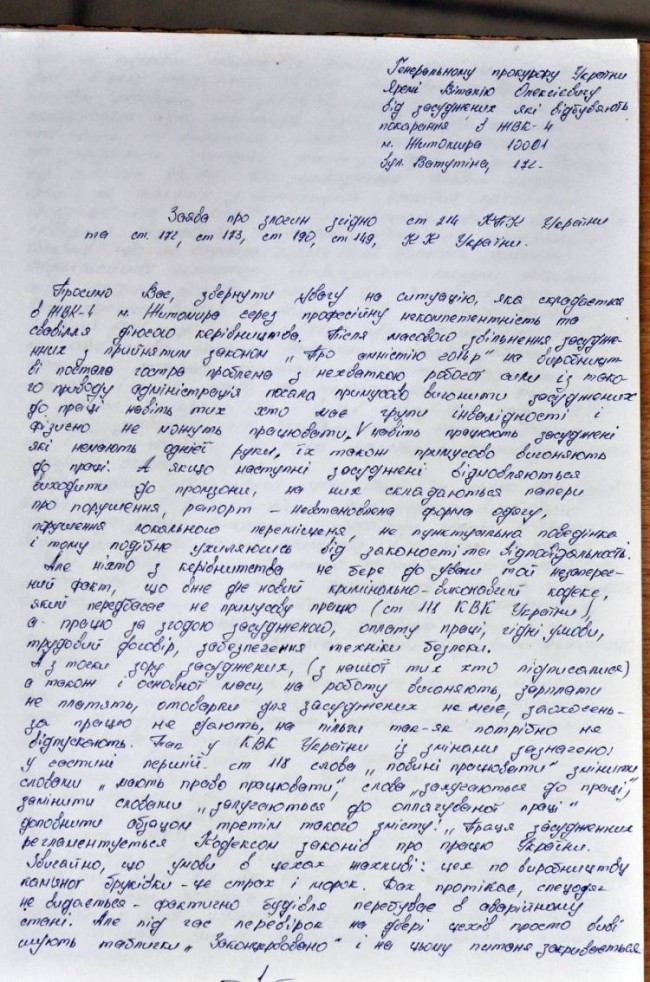 Генеральному прокурору України
Яремі Віталію Олексієвичу
від засуджених які відбувають
покарання в ЖВК-4
м. Житомира 10001
вул. Ватутіна, 172.
Заява про злочин згідно ст 214 КПК України
та ст. 172, ст 173, ст 190, ст 149, КК України.
Просимо Вас, звернути увагу на ситуацію, яка складається
в ЖВК-4 м. Житомира через професійну некомпетентність та
свавілля діючого керівництва. Після масового звільнення засудже-
нних з прийнятим законом „Про амністію 2014р" на виробницт-
ві постала гостра проблема з нехваткою робочої сили із тако-
го приводу адміністрація почала примусово виганяти засуджених
до праці навіть тих хто має групи інвалідності і
фізично не можуть працювати, навіть працюють засуджені
які немають однієї руки, їх також примусово виганяють
до праці. А якщо наступні засуджені відмовляються
виходити до промзони, на них складаються папери
про порушення, рапорт - невстановлена форма одягу,
порушення локального переміщеня, не пунктуальна поведінка
і тому подібне ухиляючись від законості та відповідальність.
Але ніхто з керівництва не бере до уваги той незапереч-
ний факт, що вже діє новий кримінально-виконавчий кодекс,
який передбачає не примусову працю (ст 118 КВК України),
а працю за згодою засудженого, оплату праці, гідні умови,
трудовий договір, забезпечення техніки безпеки.
А з точки зору засуджених, (з нашої тих хто підписалися)
а також і основної маси, на роботу виганяють, зарплати
не платять, отоварки для засуджених не має, заохочень-
за працю не дають, на пільги так-як потрібно не
відпускають. Так у КВК України із змінами зазначено:
у частині першій ст 118 слова „повинні працювати" змінити
словами „мають право працювати", слова „залучаються до праці,"
замінити словами „залучаються до оплачуваної праці"
доповнити абзацом третім такого змісту: „Праця засудженних
регламентується Кодексом законів про працю України.
Звичайно, що умови в цехах жахливі: цех по виробництву
камʼяної бруківки - це страх і морок. Дах протікає, спецодяг
не видається - фактично будівля перебуває в аварійному
стані. Але під час перевірок на двері цехів просто виві
шують таблички „Законсервовано" і на цьому питаня закривається